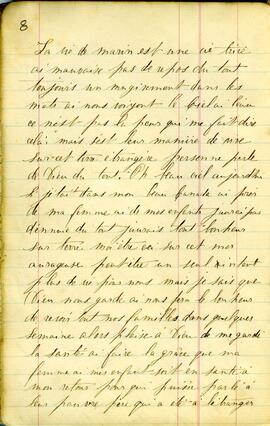 8
La vie de marin est une vie tire
ai mauvaise pas de repos du tout
toujours un mugimment dans les
mats ai nous voyont le ciel ai l'eau
ce n'est pas la peur qui me fait dire
cela mais s'est leur maniere de vivre
sur cet terre etrangere personne parle
de Dieu du tout. Oh beau ciel aujourdhui
si j'etait dans mon beau Canada ai pres
de ma femme ai de mes enfants j'aurai pas
d'ennuie du tout j'aurais tout bonheur
sur terre moi être ai sur cet mer
auraguse peut être un seul
plus de ce pas nous mais je sais que
Dieu nous garde ai nous fera le bonheur
de revoir tout nos familles dans quelques
semaine alors plaise à Dieu de me gardé
la santé ai faire la grace que ma
femme ai mes enfant soit en santé a
mon retour pour qui puisse parlé a
leur pauvre père qui a eté a l'etranger